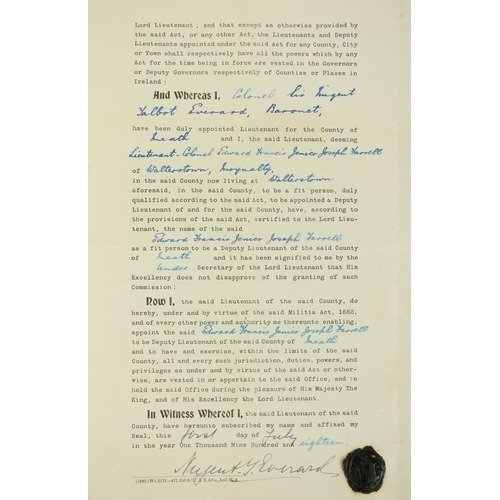 Lord Lieutenant; and that except as otherwise provided by
the said Act, or any other Act, the Lieutenants and Deputy
Lieutenants appointed under the said Act for any County, City
or Town shall respectively have all the powers which by any
Act for the time being in force are vested in the Governors
or Deputy Governors respectively of Counties or Places in
Ireland:
And Whereas I, Colonel Sir Nugent
Talbot Everard, Baronet,
have been duly appointed Lieutenant for the County of
Meath and I, the said Lieutenant, deeming
Lieutenant-Colonel Edward Francis Jenico Joseph Farrell
of Walterstown, Moynalty,
in the said County now living at Walterstown
aforesaid, in the said County, to be a fit person, duly
qualified according to the said Act, to be appointed a Deputy
Lieutenant of and for the said County, have, according to
the provisions of the said Act, certified to the Lord Lieu-
tenant, the name of the said
Edward Francis Jenico Joseph Farrell
as a fit person to be a Deputy Lieutenant of the said County
of Meath and it has been signified to me by the
Under Secretary of the Lord Lieutenant that His
Excellency does not disapprove of the granting of such
Commission:
Now I, the said Lieutenant of the said County, do
hereby, under and by virtue of the said Militia Act, 1882,
and of every other power and authority me thereunto enabling,
appoint the said Edward Francis Jenico Joseph Farrell
to be Deputy Lieutenant of the said County of Meath
and to have and exercise, within the limits of the said
County, all and every such jurisdiction, duties, powers, and
privileges as under and by virtue of the said Act or other-
wise, are vested in or appertain to the said Office, and to
hold the said Office during the pleasure of His Majesty The
King, and of His Excellency the Lord Lieutenant.
In Witness Whereof I, the said Lieutenant of the said
County, have hereunto subscribed my name and affixed my
Seal, this First day of July
in the year One Thousand Nine Hundred and eighteen.
Nugent T. Everard